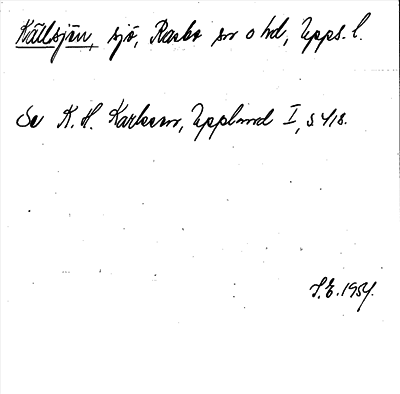 Källsjön, sjö, Rasbo sn o hd, Upps. l.
Se K. H. Karlsson, Uppland I, s 418.
S.E. 1954.